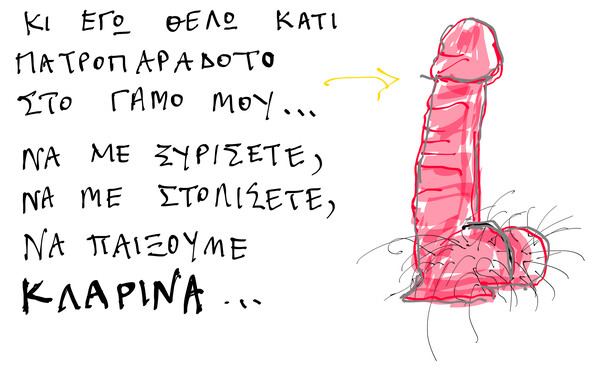 ΚΙ ΕΓΩ ΘΕΛΩ ΚΑΤΙ
ΠΑΤΡΟΠΑΡΑΔΟΤΟ
ΣΤΟ ΓΑΜΟ ΜΟΥ...
ΝΑ ΜΕ ΞΥΡΙΣΕΤΕ,
ΝΑ ΜΕ ΣΤΟΛΙΣΕΤΕ,
ΝΑ ΠΑΙΞΟΥΜΕ
ΚΛΑΡΙΝΑ...